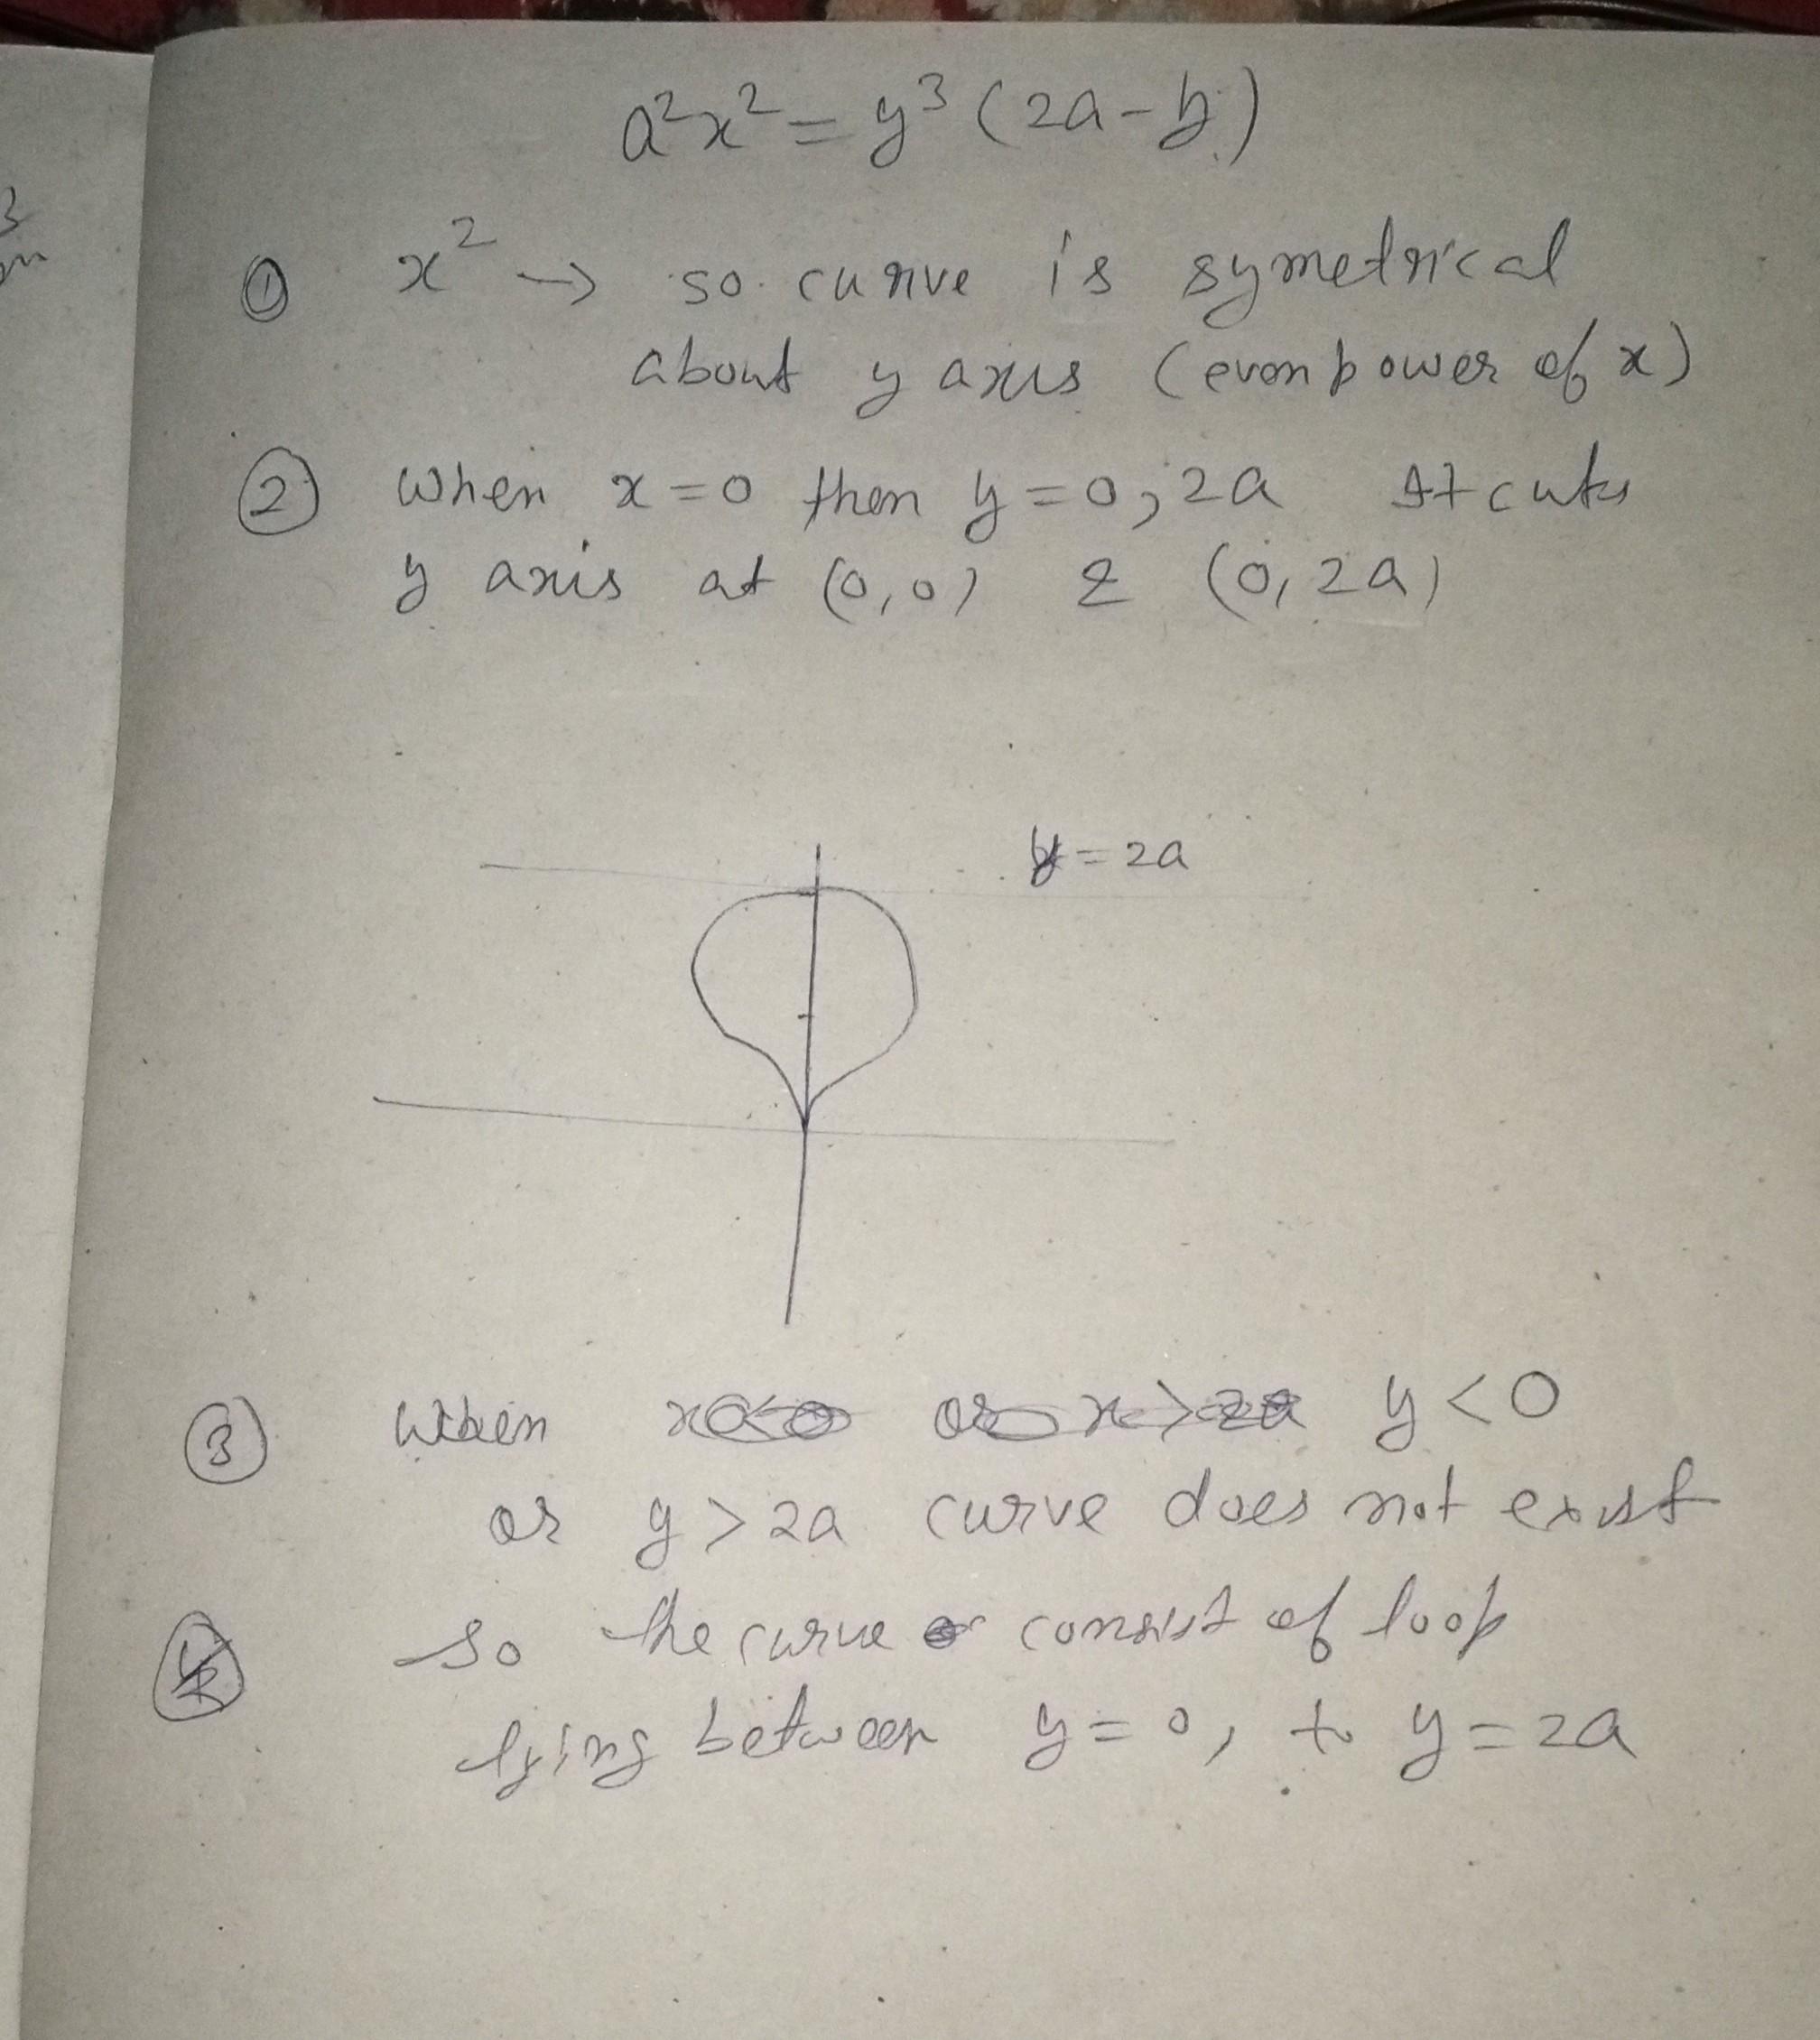 a²x² = y³ (2a - y)
① x² → so curve is symetrical
about y axis (even power of x)
② when x = 0 then y = 0, 2a It cuts
y axis at (0,0) & (0, 2a)
y = 2a
③ when y < 0
or y > 2a curve does not exist
④ so the curve consist of loop
lying between y = 0, to y = 2a